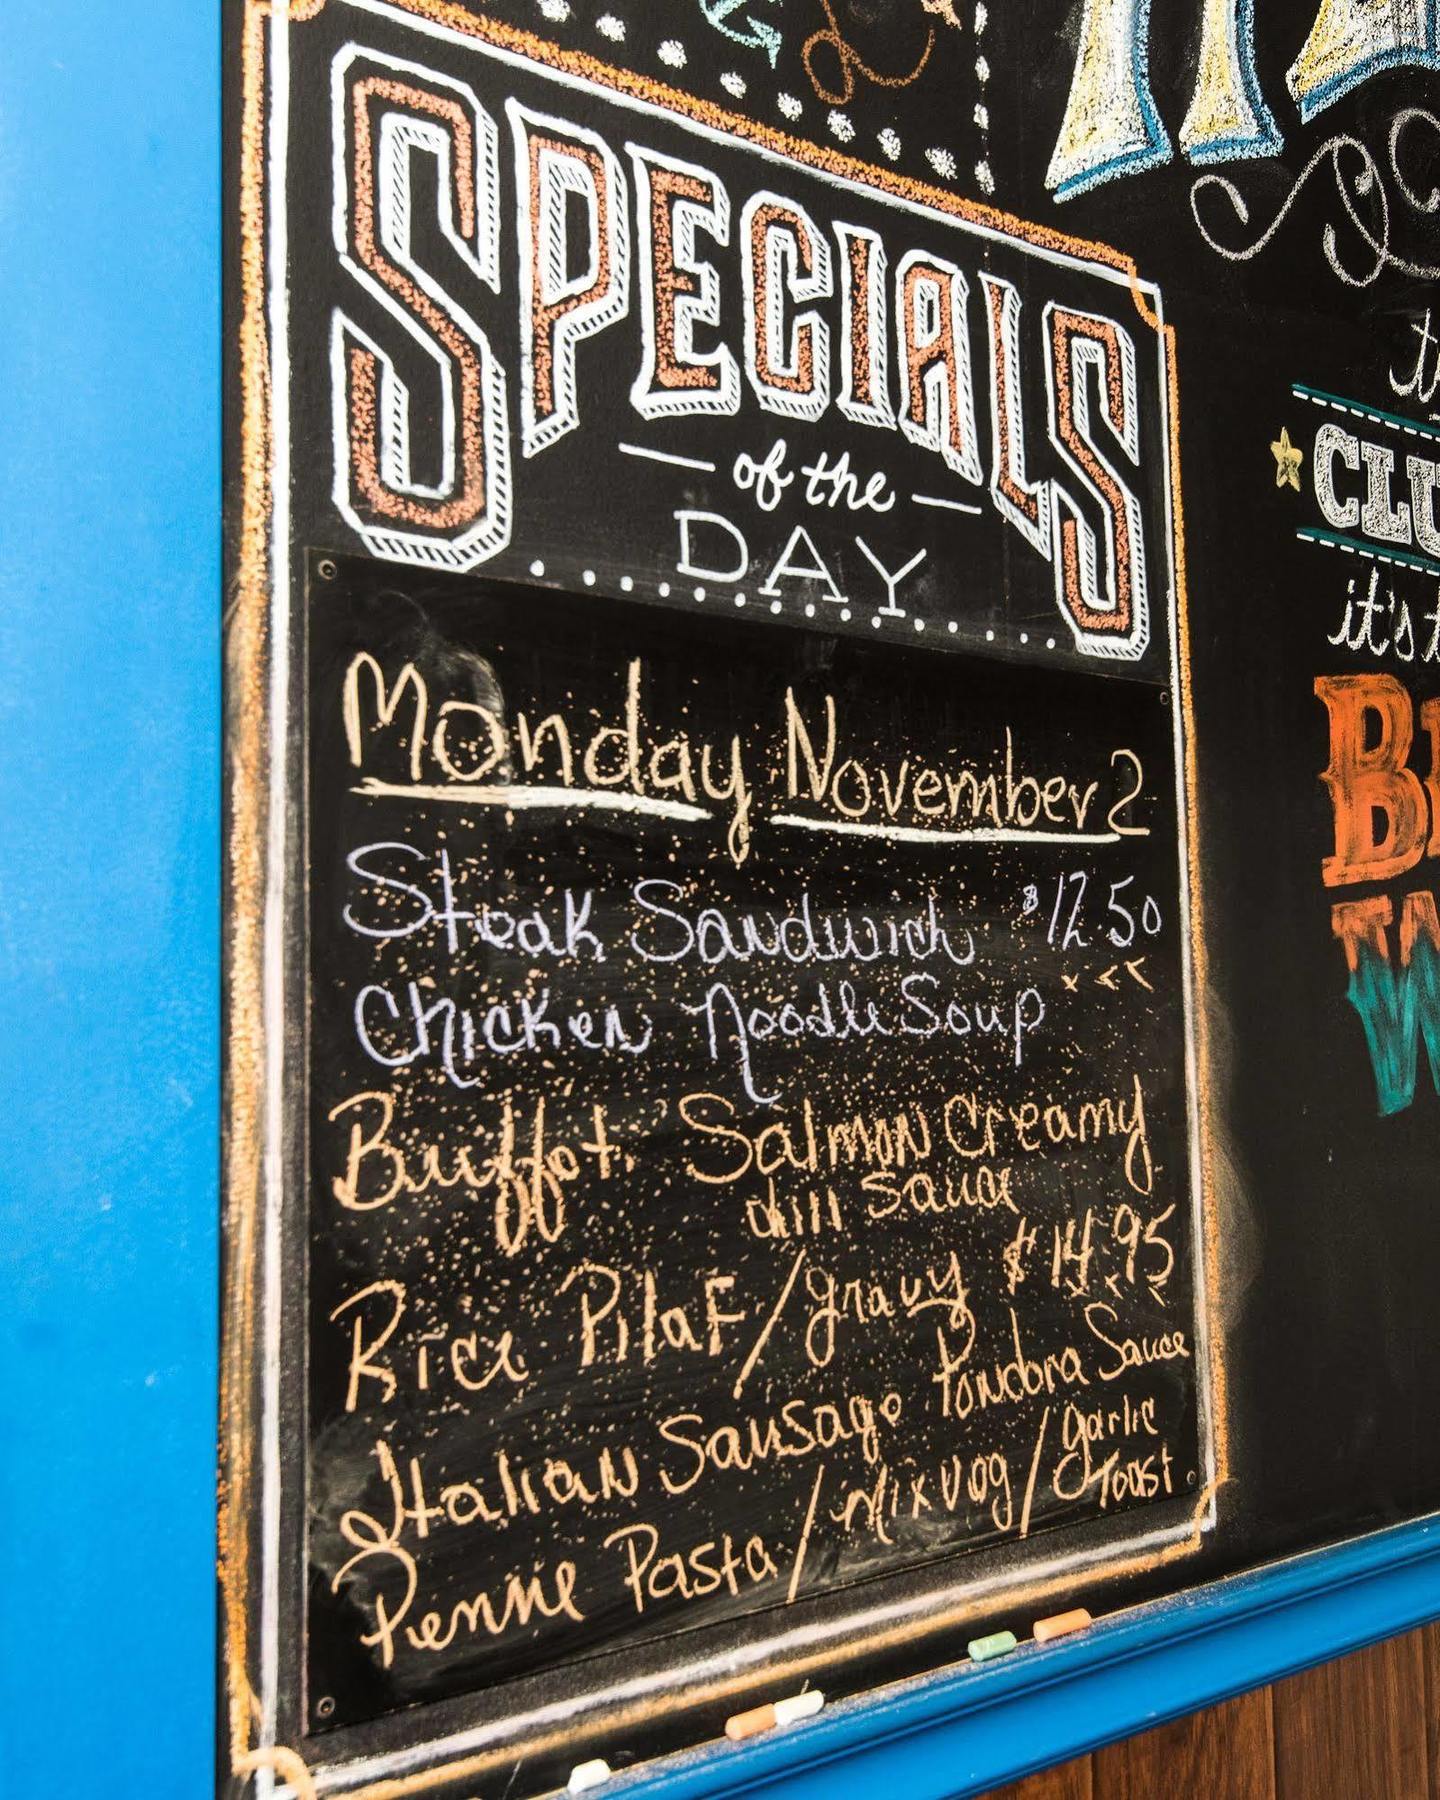 SPECIALS
of the
DAY
Monday November 2
Steak Sandwich $12.50
Chicken Noodle Soup
Buffet. Salmon Creamy
dill sauce
Rice Pilaf/gravy $14.95
Italian Sausage Pondora Sauce
Penne Pasta/Mix veg/garlic
Toast
CLU
it's t